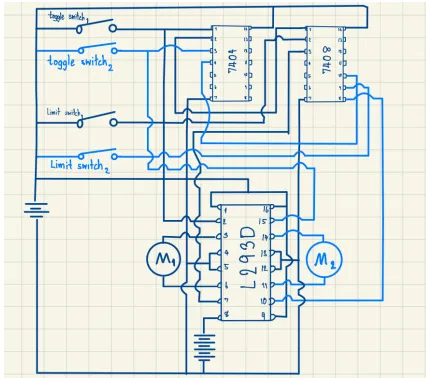 toggle switch1
toggle switch2
Limit switch1
Limit switch2
7404
7408
L293D
1
2
3
4
5
6
7
8
16
15
14
13
12
11
10
9
M1
M2